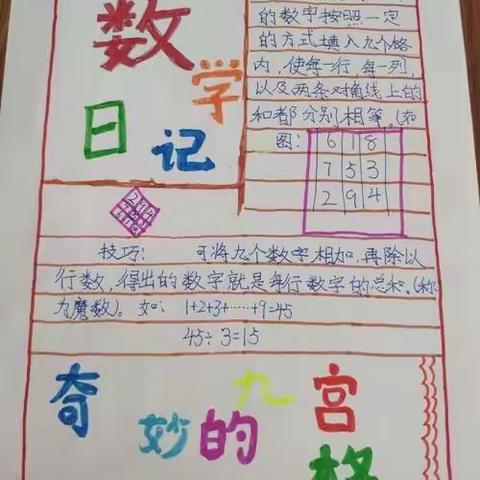 数
学
日
记
的数字按照一定
的方式填入九个格
内，使每一行，每一列，
以及两条对角线上的
和都分别相等。(如
图：
6 1 8
7 5 3
2 9 4
技巧： 可将九个数字相加，再除以
行数，得出的数字就是每行数字的总和。(称
为魔数)。如： 1+2+3+……+9=45
45÷3=15
奇
妙的九宫
格